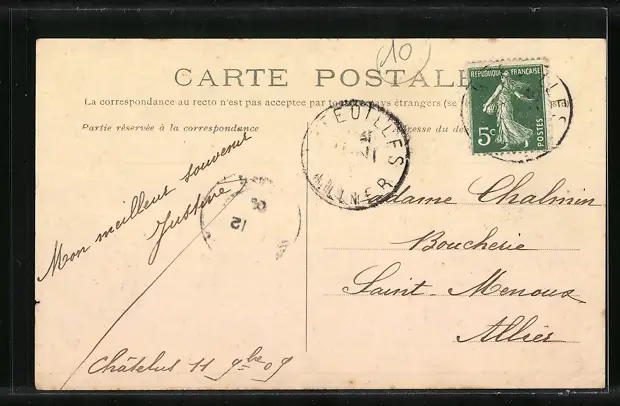 10
CARTE POSTALE
La correspondance au recto n'est pas acceptée par tous pays étrangers (se
Partie réservée à la correspondance
Adresse du des
RÉPUBLIQUE FRANÇAISE
5c
POSTES
TEUILLES
ALLIER
12
Mon meilleur souvenir
Justine
Madame Chalmin
Boucherie
Saint-Menoux
Allier
Châtelus 11 9bre 09